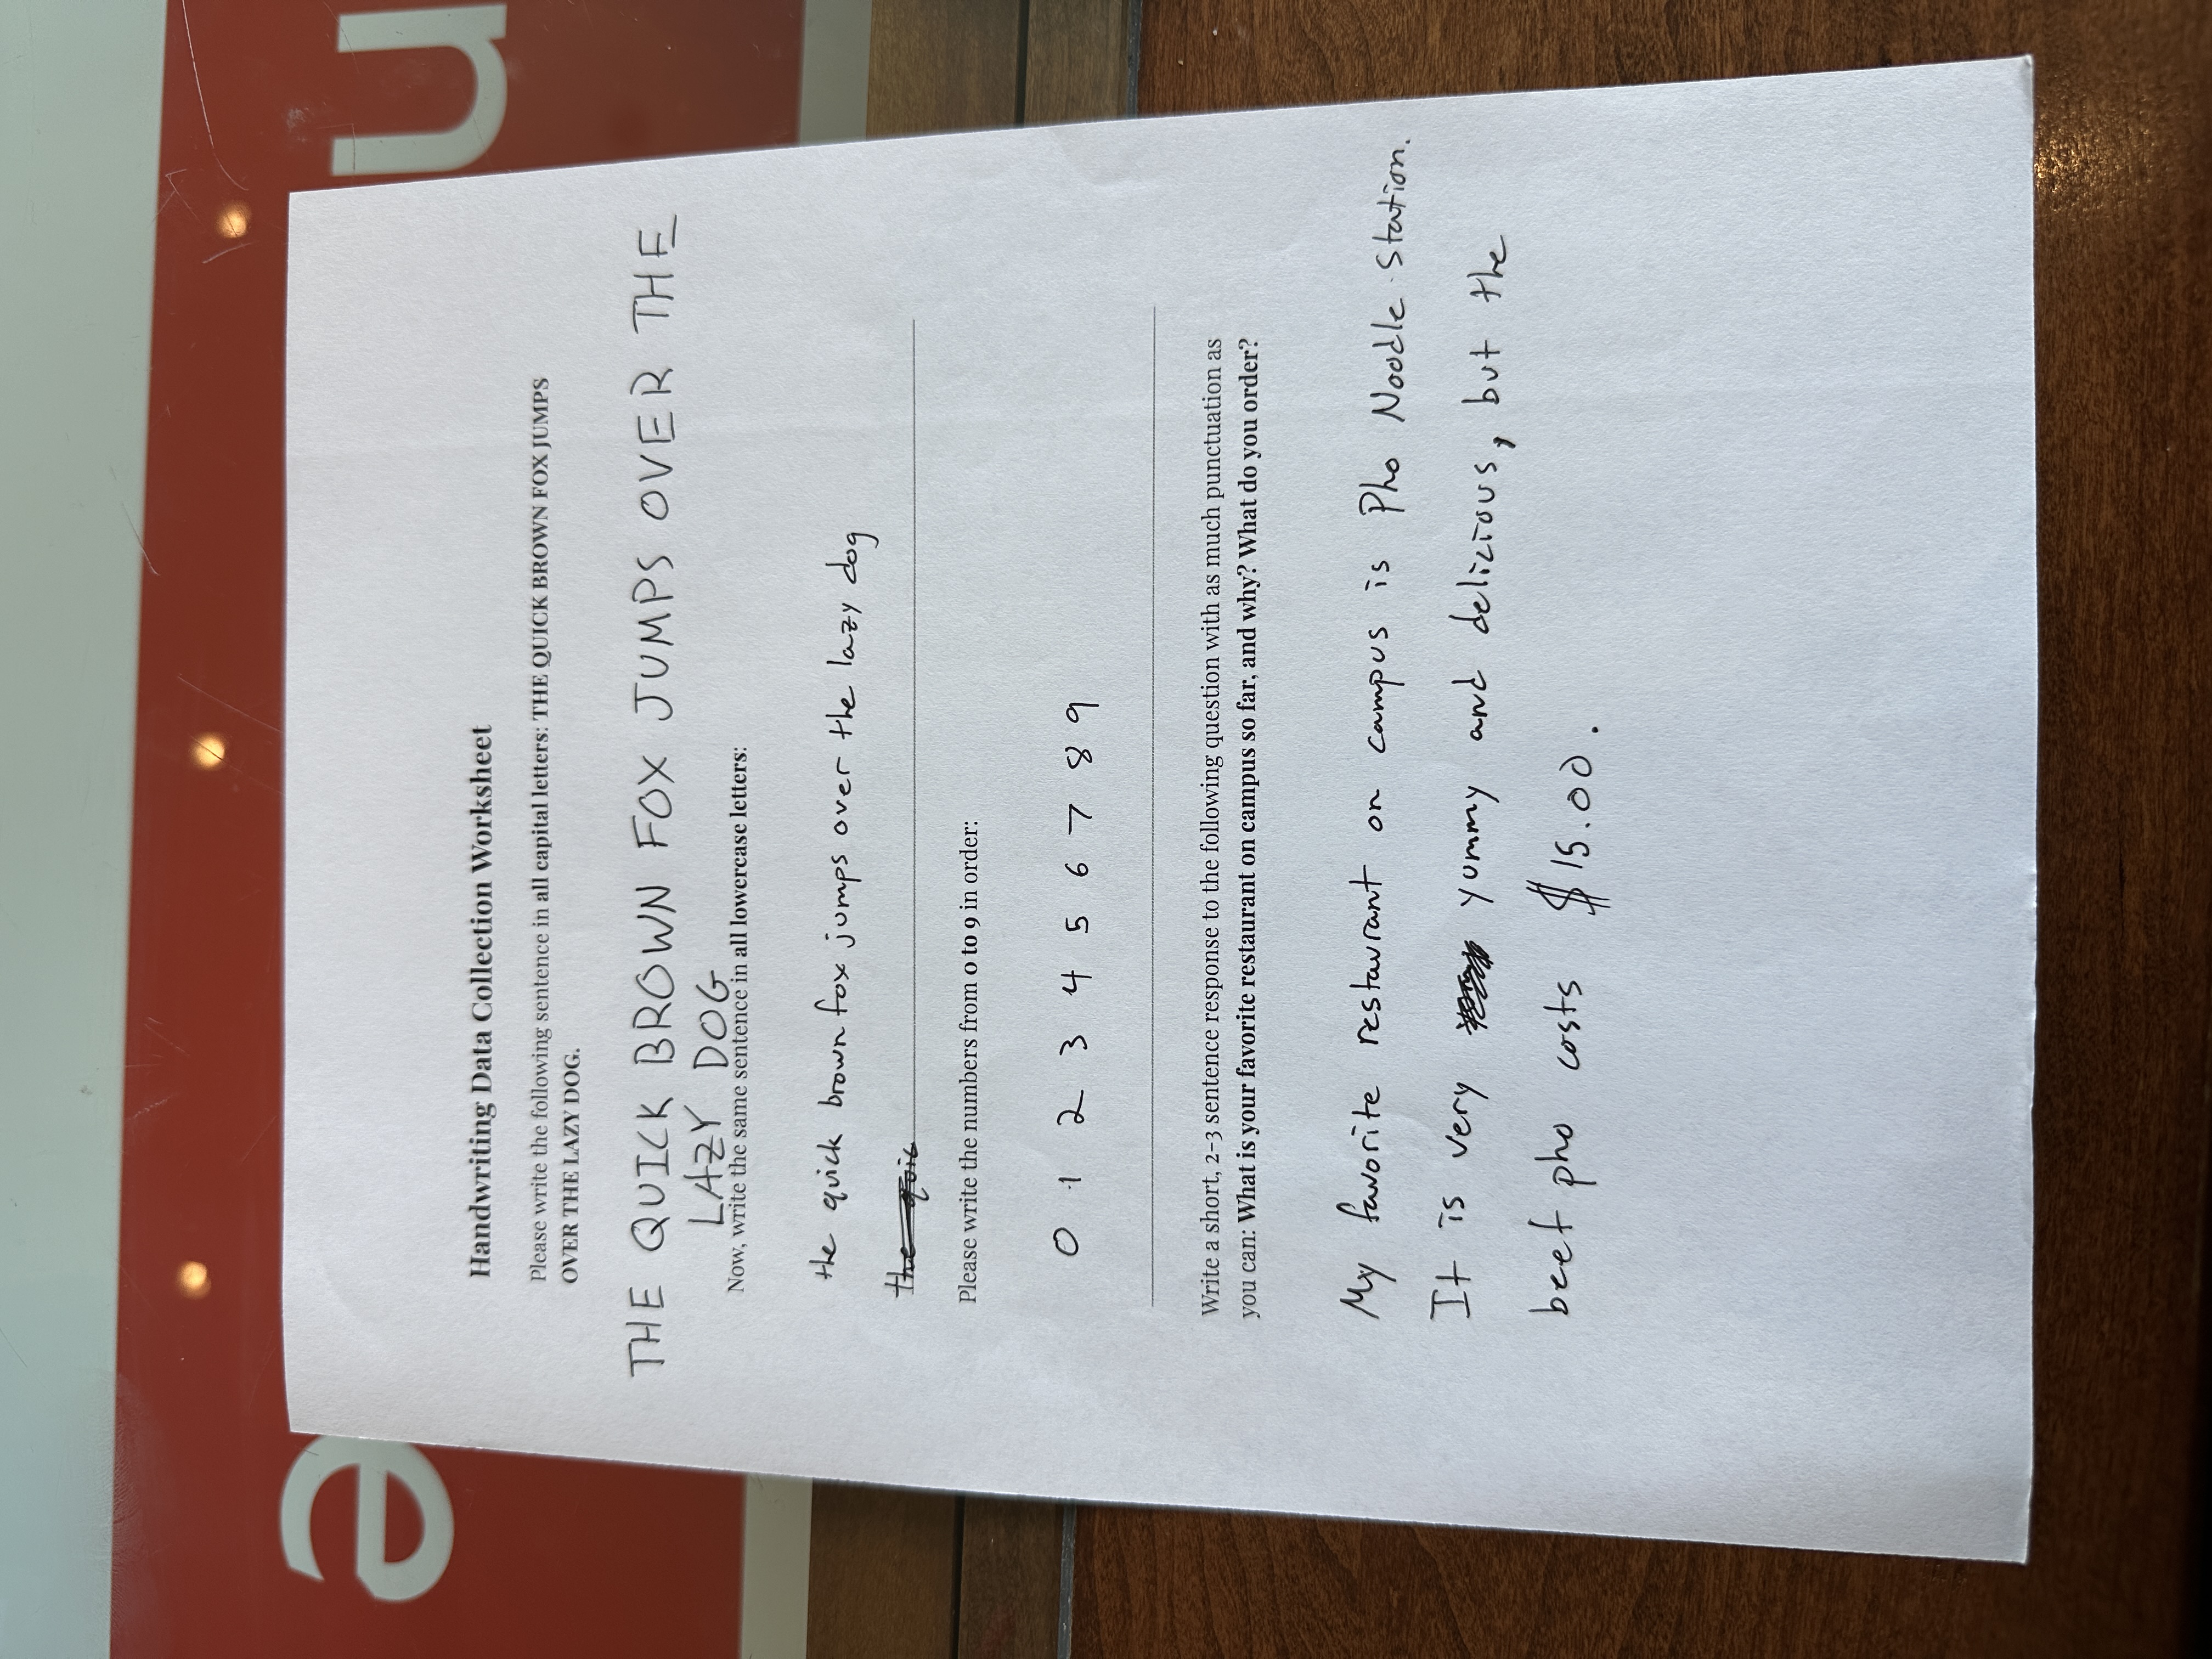 Handwriting Data Collection Worksheet
Please write the following sentence in all capital letters: THE QUICK BROWN FOX JUMPS
OVER THE LAZY DOG.
THE QUICK BROWN FOX JUMPS OVER THE
LAZY DOG
Now, write the same sentence in all lowercase letters:
the quick brown fox jumps over the lazy dog
the quic
Please write the numbers from 0 to 9 in order:
0 1 2 3 4 5 6 7 8 9
Write a short, 2-3 sentence response to the following question with as much punctuation as
you can: What is your favorite restaurant on campus so far, and why? What do you order?
My favorite restaurant on campus is Pho Noodle Station.
It is very yummy and delicious, but the
beef pho costs $15.00.